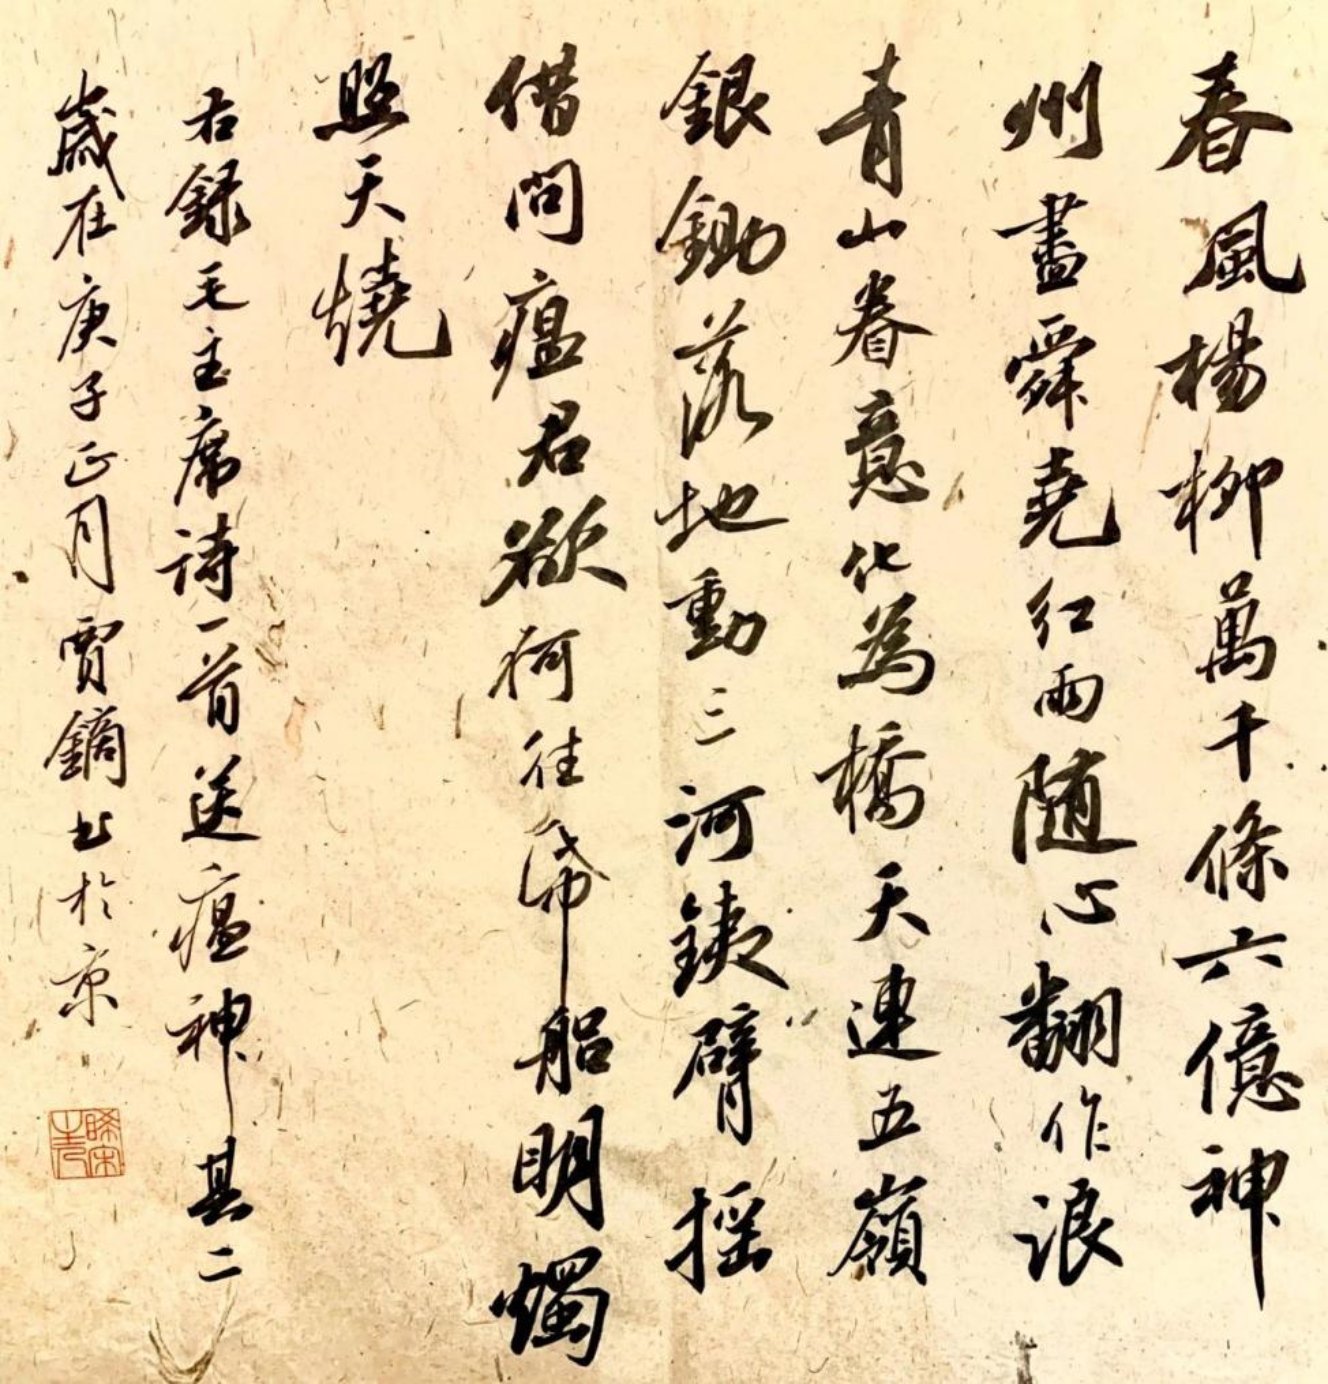 春風楊柳萬千條六億神
州盡舜堯紅雨随心翻作浪
青山眷意化為橋天連五嶺
銀鋤落地動三河鐵臂揺
借問瘟君欲何往帋船明燭
照天燒
右録毛主席詩一首送瘟神其二
歲在庚子正月賈鏑书於京